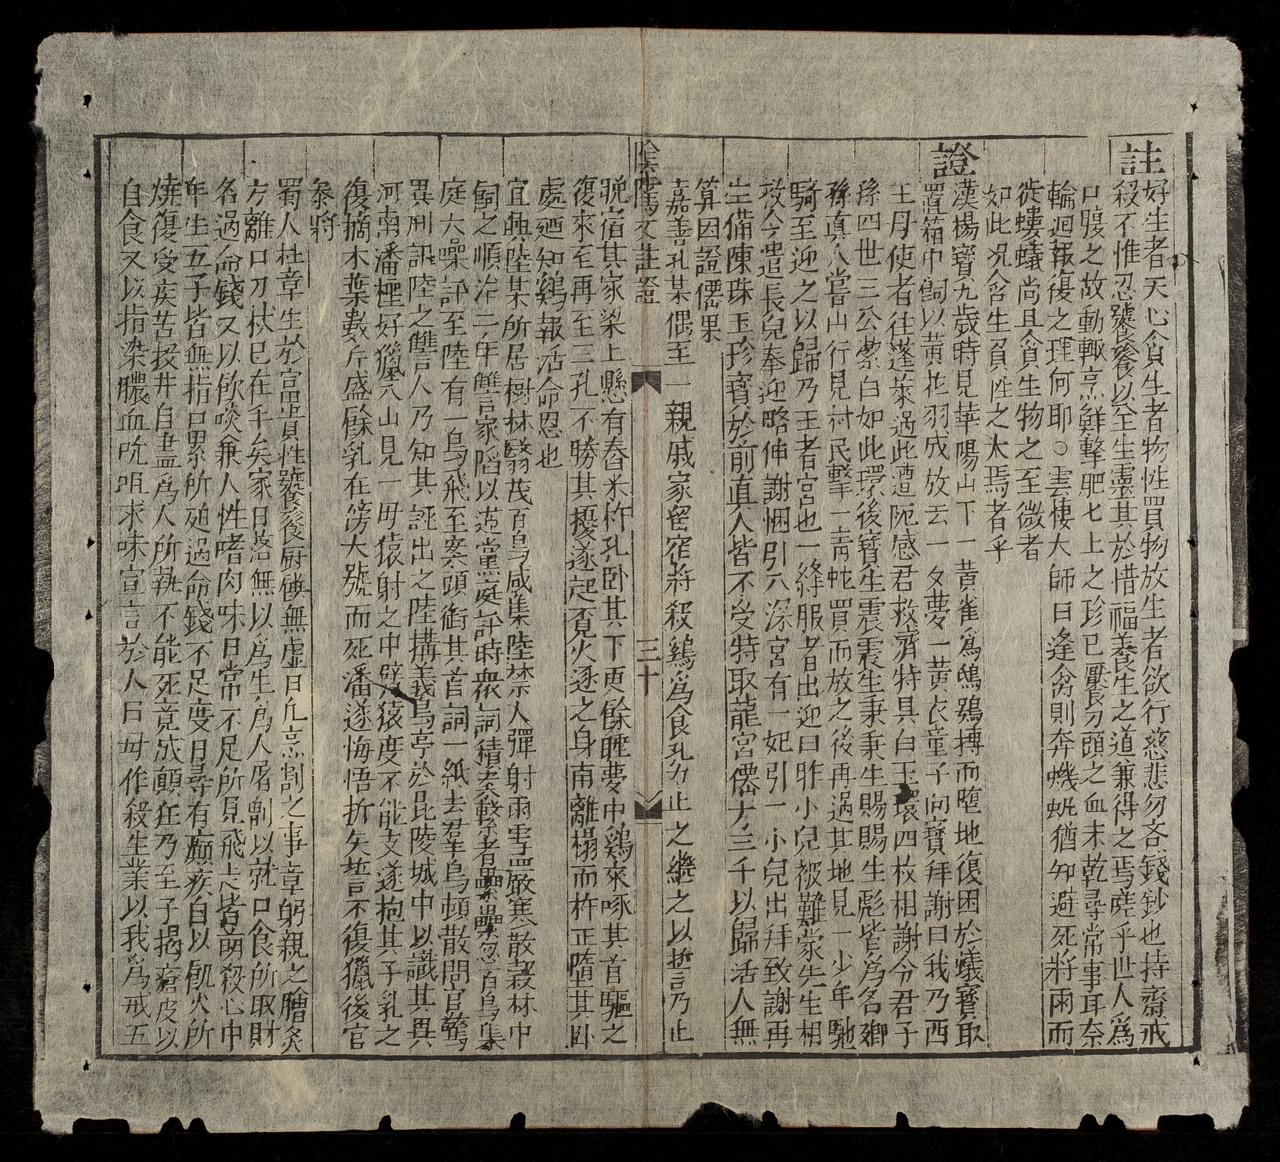 註
好生者天心貪生者物性買物放生者欲行慈悲勿吝錢鈔也持齋戒
殺不惟忍饕餮以全生靈其於惜福養生之道兼得之焉嗟乎世人爲
口腹之故動輒烹鮮擊肥七上之珍已饜刃頭之血未乾尋常事耳奈
輪迴報復之理何耶○雲棲大師曰逢禽則奔蟣蝨猶知避死將雨而
徙螻蟻尚且貪生物之至微者
如此况含生負性之大焉者乎
證
漢楊寶九歲時見華陽山下一黃雀爲鴟鴞搏而墮地復困於蟻寶取
置箱中飼以黃花羽成放去一夕夢一黃衣童子向寶拜謝曰我乃西
王母使者往蓬萊過此遭阨感君救濟特具白玉環四枚相謝令君子
孫四世三公潔白如此環後寶生震震生秉秉生賜賜生彪皆爲名卿
孫眞人嘗山行見村民擊一青蛇買而放之後再過其地見一少年馳
騎至迎之以歸乃王者宮也一絳服者出迎曰昨小兒被難蒙先生相
救今遣長兒奉迎略伸謝悃引入深宮有一妃引一小兒出拜致謝再
生備陳珠玉珍寶於前眞人皆不受特取龍宮僊方三千以歸活人無
算因證僊果
嘉善孔某偶至一親戚家留宿將殺鷄爲食孔力止之繼之以誓乃止
陰隲文註證
三十
晚宿其家梁上懸有舂米杵孔卧其下更餘睡夢中鷄來啄其首驅之
復來至再至三孔不勝其擾遂起覓火逐之身甫離榻而杵正墮其卧
處廼知鷄報活命恩也
宜興陸某所居樹林翳茂百鳥咸集陸禁人彈射雨雪嚴寒散穀林中
飼之順治二年讐家陷以逆黨庭訐時衆詞積案繫者纍纍忽百鳥集
庭大噪訐至陸有一鳥飛至案頭銜其首詞一紙去羣鳥頓散問官驚
異刑訊陸之讐人乃知其誣出之陸搆義鳥亭於毘陵城中以識其異
河南潘樫好獵入山見一母猿射之中臂猿度不能支遂抱其子乳之
復摘木葉數斤盛餘乳在傍大號而死潘遂悔悟折矢誓不復獵後官
叅將
蜀人杜章生於富貴性饕餮厨饌無虛日凡烹割之事章躬親之膾炙
方離口刀杖已在手矣家日落無以爲生爲人屠劊以就口食所取財
名過命錢又以飲啖兼人性嗜肉味日常不足所見飛走皆萌殺心中
年生五子皆無指口累所廹過命錢不足度日尋有癩疾自以飢火所
燒復受疾苦投井自盡爲人所執不能死竟成顛狂乃至子揭瘡皮以
自食又以指染膿血吮咀求味宣言於人曰毋作殺生業以我爲戒五